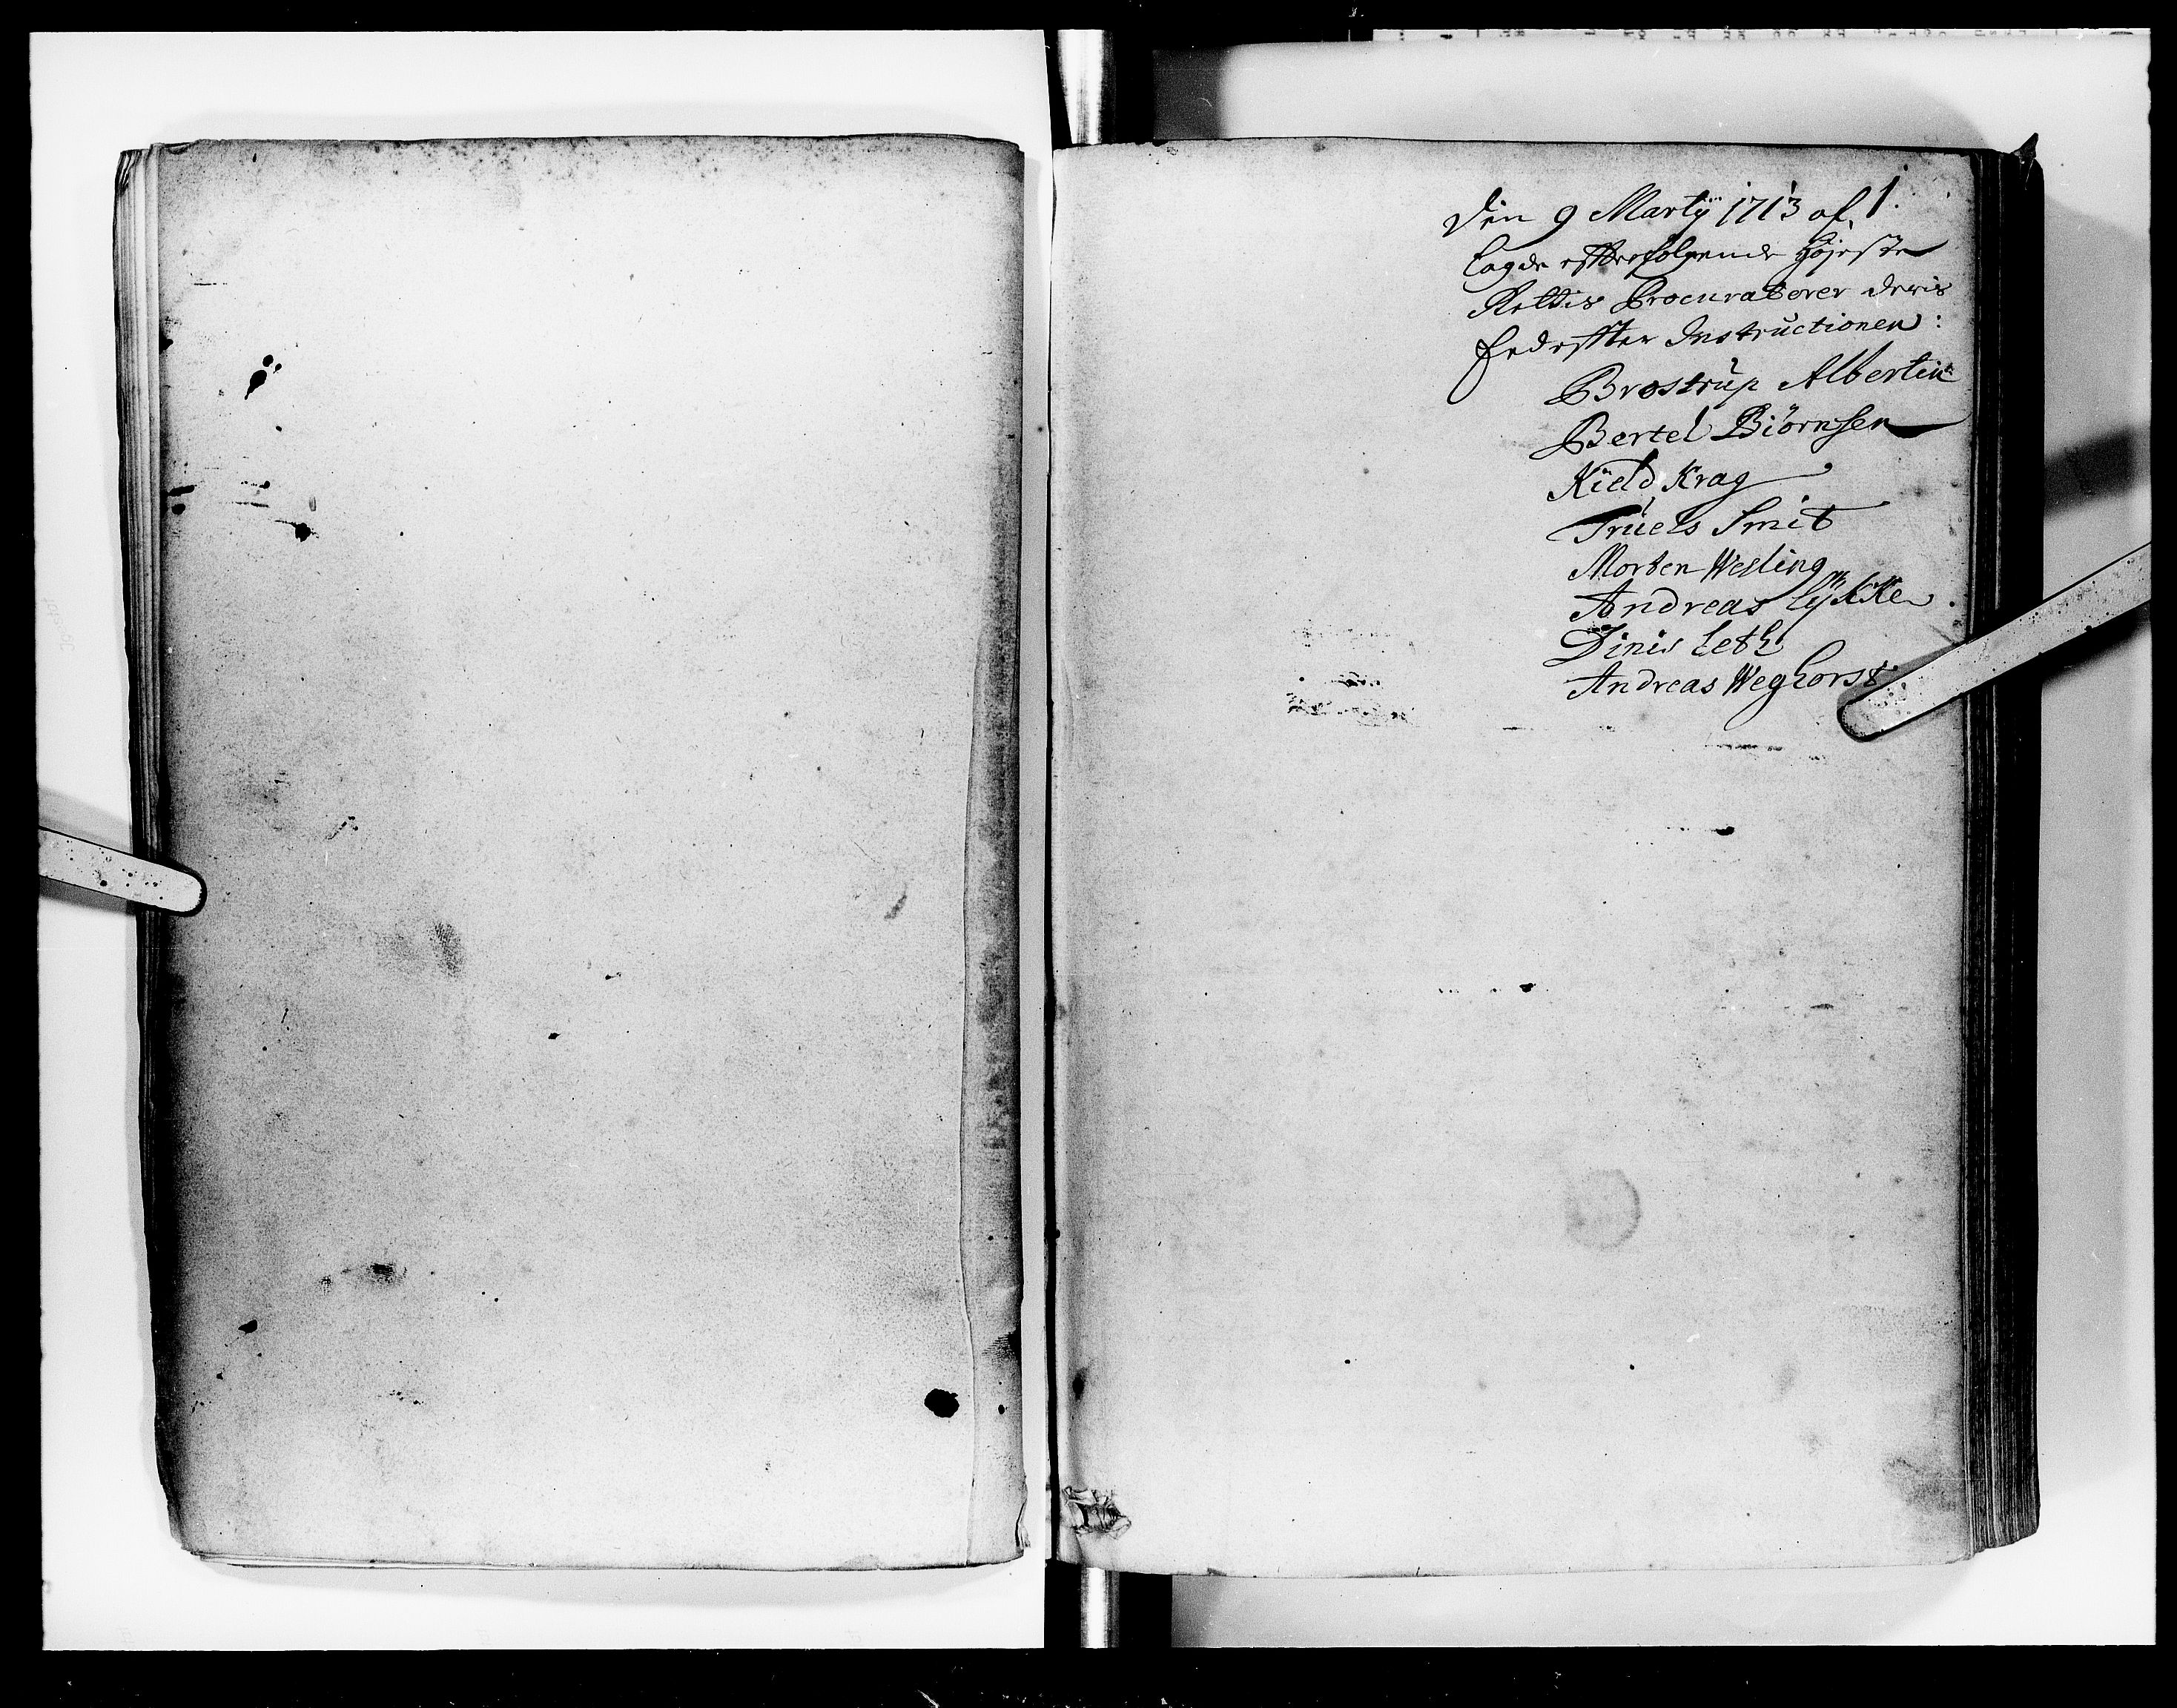 1.
Den 9 Martÿ 1713 af,
lagde efterfølgende Højeste
Rettis Procuratorer deris
Eed efter Instructionen:
Brostrup Albertin
Bertel Biörnsen
Kield Krag
Trúels Smit
Morten Wesling
Andreas Lÿkke
Dinis Leth
Andreas Weghorst